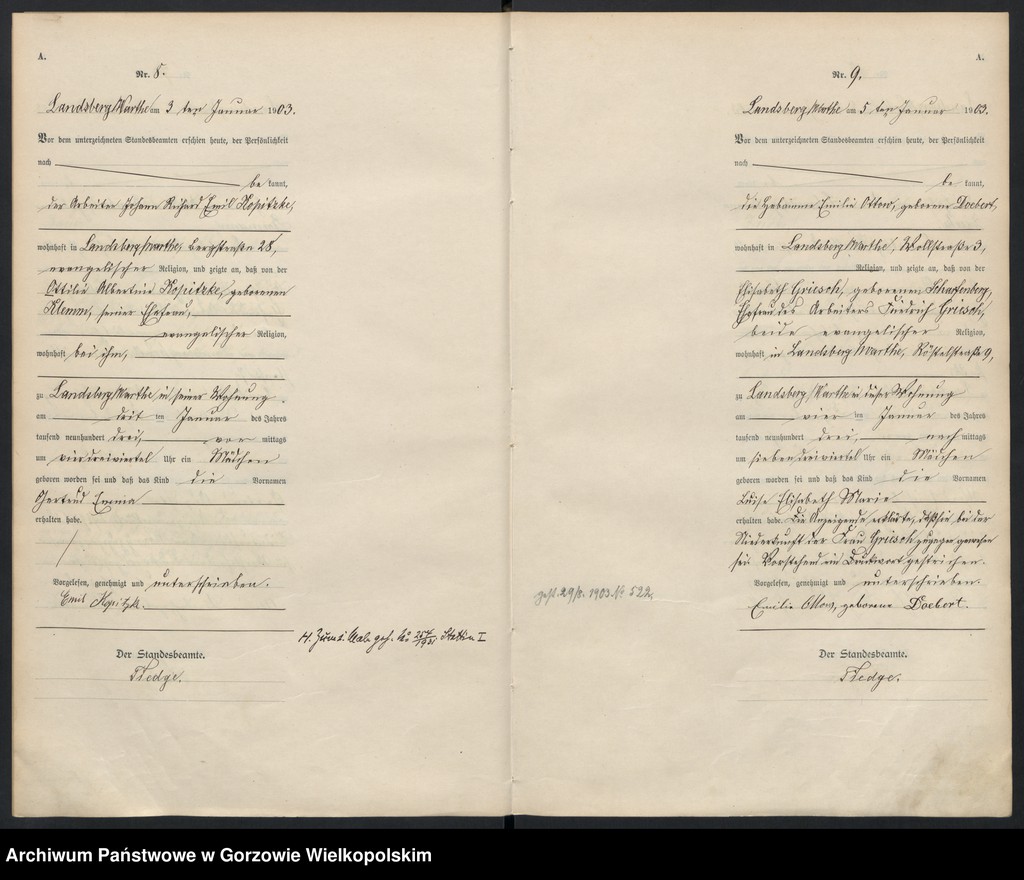 A.
Nr. 8.
Landsberg/Warthe am 3 ten Januar 1903.
Vor dem unterzeichneten Standesbeamten erschien heute, der Persönlichkeit
nach
be kannt,
der Arbeiter Johann Richard Emil Kopitzke,
wohnhaft in Landsberg/Warthe, Bergstraße 28,
evangelischer Religion, und zeigte an, daß von der
Ottilie Albertine Kopitzke, geborenen
Klemm, seiner Ehefrau,
evangelischer Religion,
wohnhaft bei ihm,
zu Landsberg/Warthe in seiner Wohnung
am drit ten Januar des Jahres
tausend neunhundert drei, vor mittags
um vierdreiviertel Uhr ein Mädchen
geboren worden sei und daß das Kind die Vornamen
Gertrud Emma
erhalten habe.
Vorgelesen, genehmigt und unterschrieben.
Emil Kopitzk.
Der Standesbeamte.
Fledge.
H. 254/1921 Stettin I
A.
Nr. 9.
Landsberg/Warthe am 5 ten Januar 1903.
Vor dem unterzeichneten Standesbeamten erschien heute, der Persönlichkeit
nach
be kannt,
die Hebamme Emilie Ottow, geborene Doebert,
wohnhaft in Landsberg/Warthe, Wollstraße 3,
Religion, und zeigte an, daß von der
Elisabeth Griesch, geborenen Scharfenberg,
Ehefrau des Arbeiters Friedrich Griesch,
beide evangelischer Religion,
wohnhaft in Landsberg/Warthe, Röstelstraße 9,
zu Landsberg/Warthe in dieser Wohnung
am vier ten Januar des Jahres
tausend neunhundert drei, nach mittags
um siebendreiviertel Uhr ein Mädchen
geboren worden sei und daß das Kind die Vornamen
Luise Elisabeth Marie
erhalten habe. Die Anzeigende erklärte, daß sie bei der
Niederkunft der Frau Griesch zugegen gewesen
sei. Vorstehend ein Druckwort gestrichen.
Vorgelesen, genehmigt und unterschrieben.
Emilie Ottow, geborene Doebert.
gest. 29/8. 1903 No 522.
Der Standesbeamte.
Fledge.
Archiwum Państwowe w Gorzowie Wielkopolskim